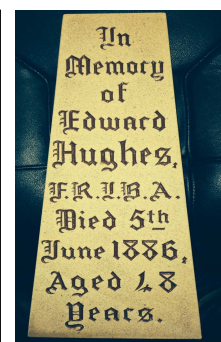 In
Memory
of
Edward
Hughes,
F.R.I.B.A.
Died 5th
June 1886,
Aged 48
Years.